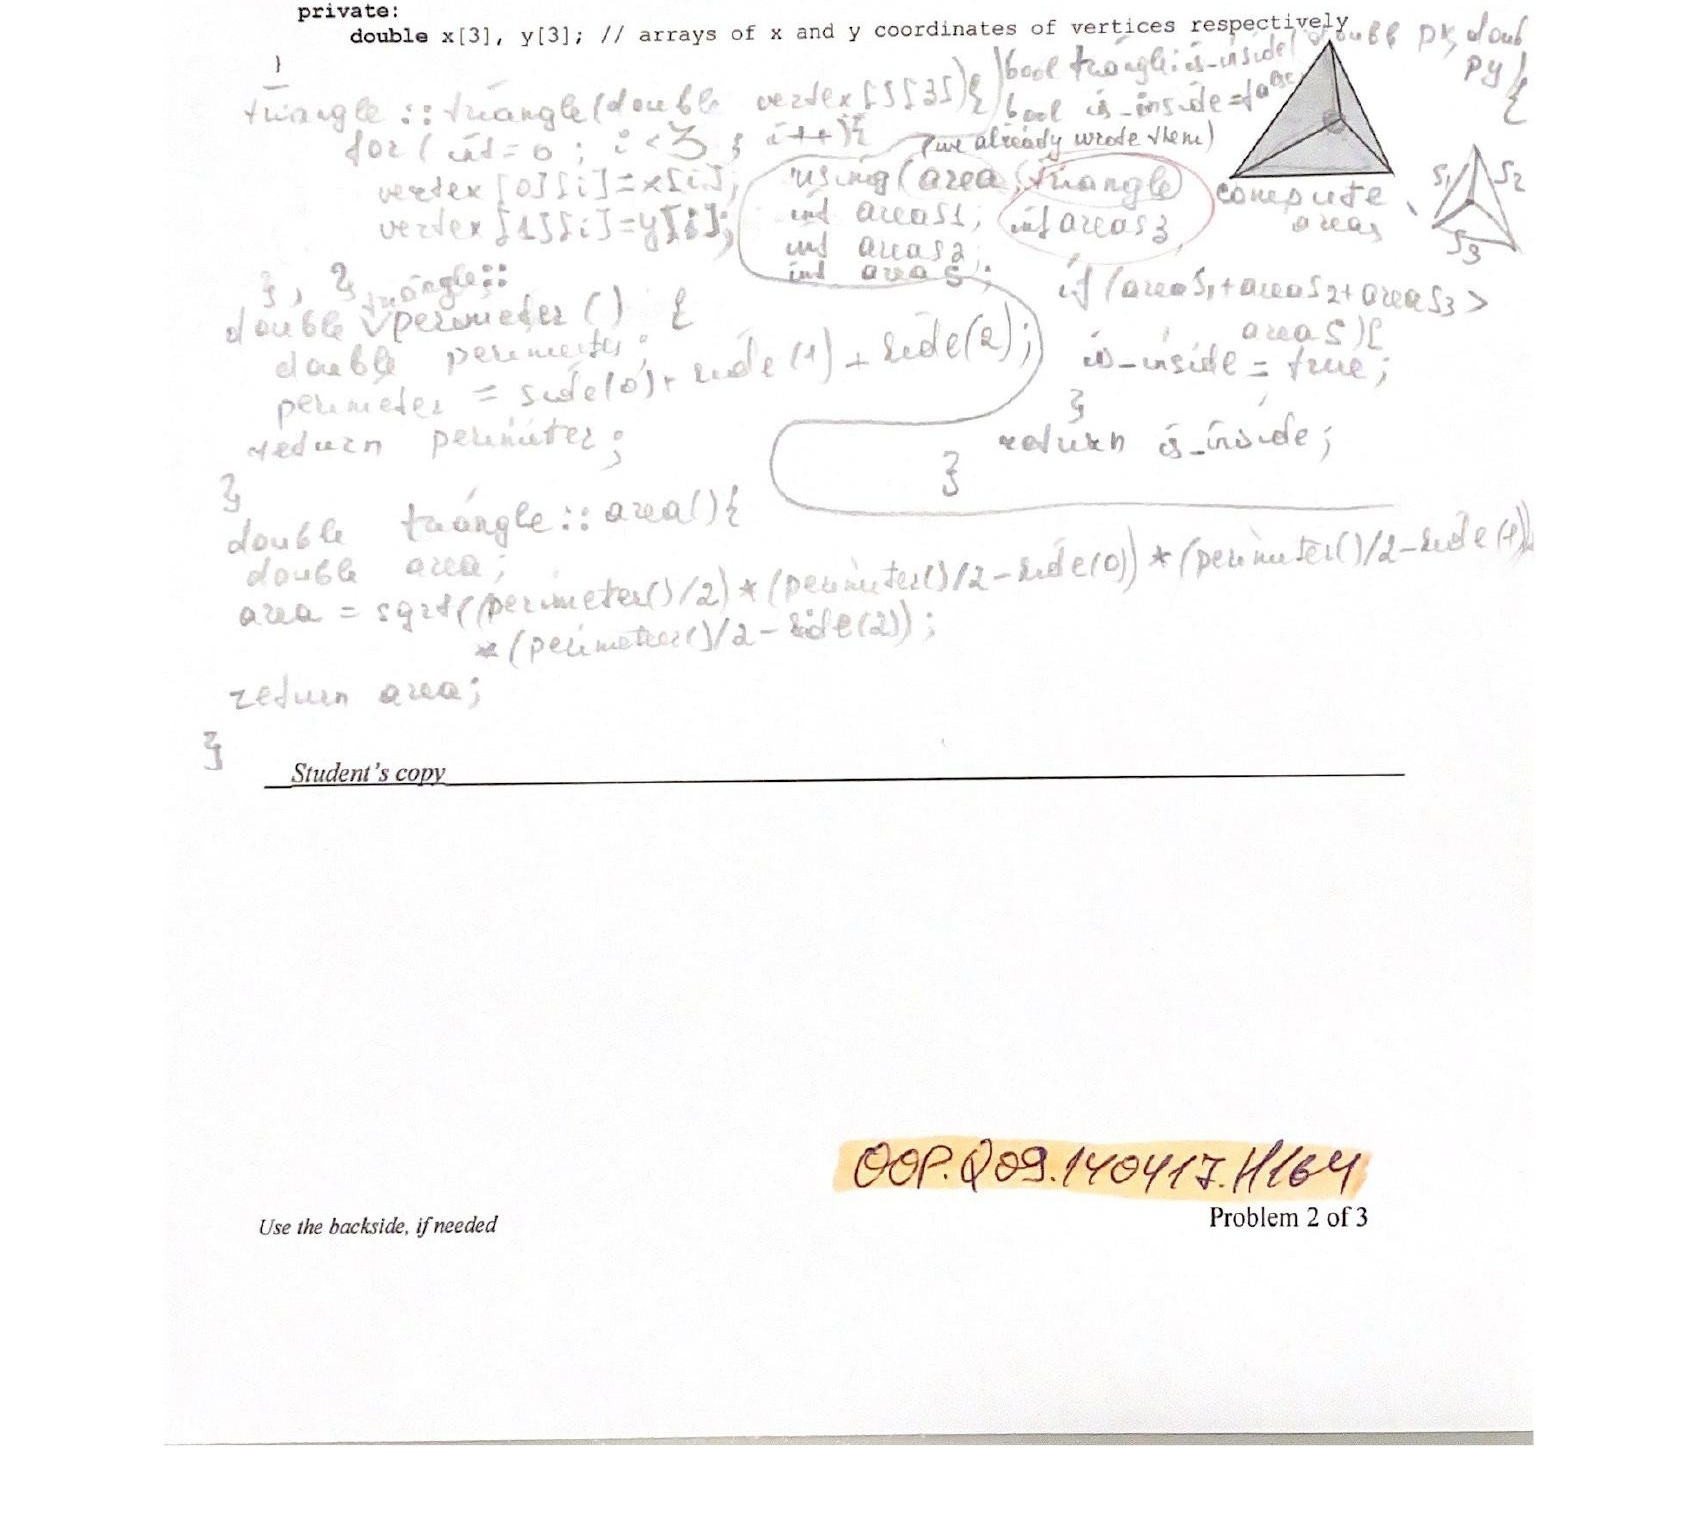 private:
double x[3], y[3]; // arrays of x and y coordinates of vertices respectively
}
triangle :: triangle(double vertex[][3]){
for( int=0 ; i<3 ; i++){
vertex[0][i]=x[i];
vertex[1][i]=y[i];
}, }
double triangle:: perimeter() {
double perimeter;
perimeter = side(0)+ side(1) + side(2);
return perimeter;
}
double triangle:: area(){
double area;
area = sqrt((perimeter()/2) * (perimeter()/2-side(0)) * (perimeter()/2-side(1))
* (perimeter()/2-side(2));
return area;
}
bool triangle::is_inside(double px, doub
py){
bool is_inside=false;
(we already wrote them)
using(area, triangle)
int areaS1; int areaS3,
int areaS2;
int areaS;
compute
areas
S1 S2
S3
if (areaS1+areaS2+areaS3>
areaS){
is_inside = true;
}
return is_inside;
}
Student's copy
OOP.Q09.140417.H164
Use the backside, if needed
Problem 2 of 3